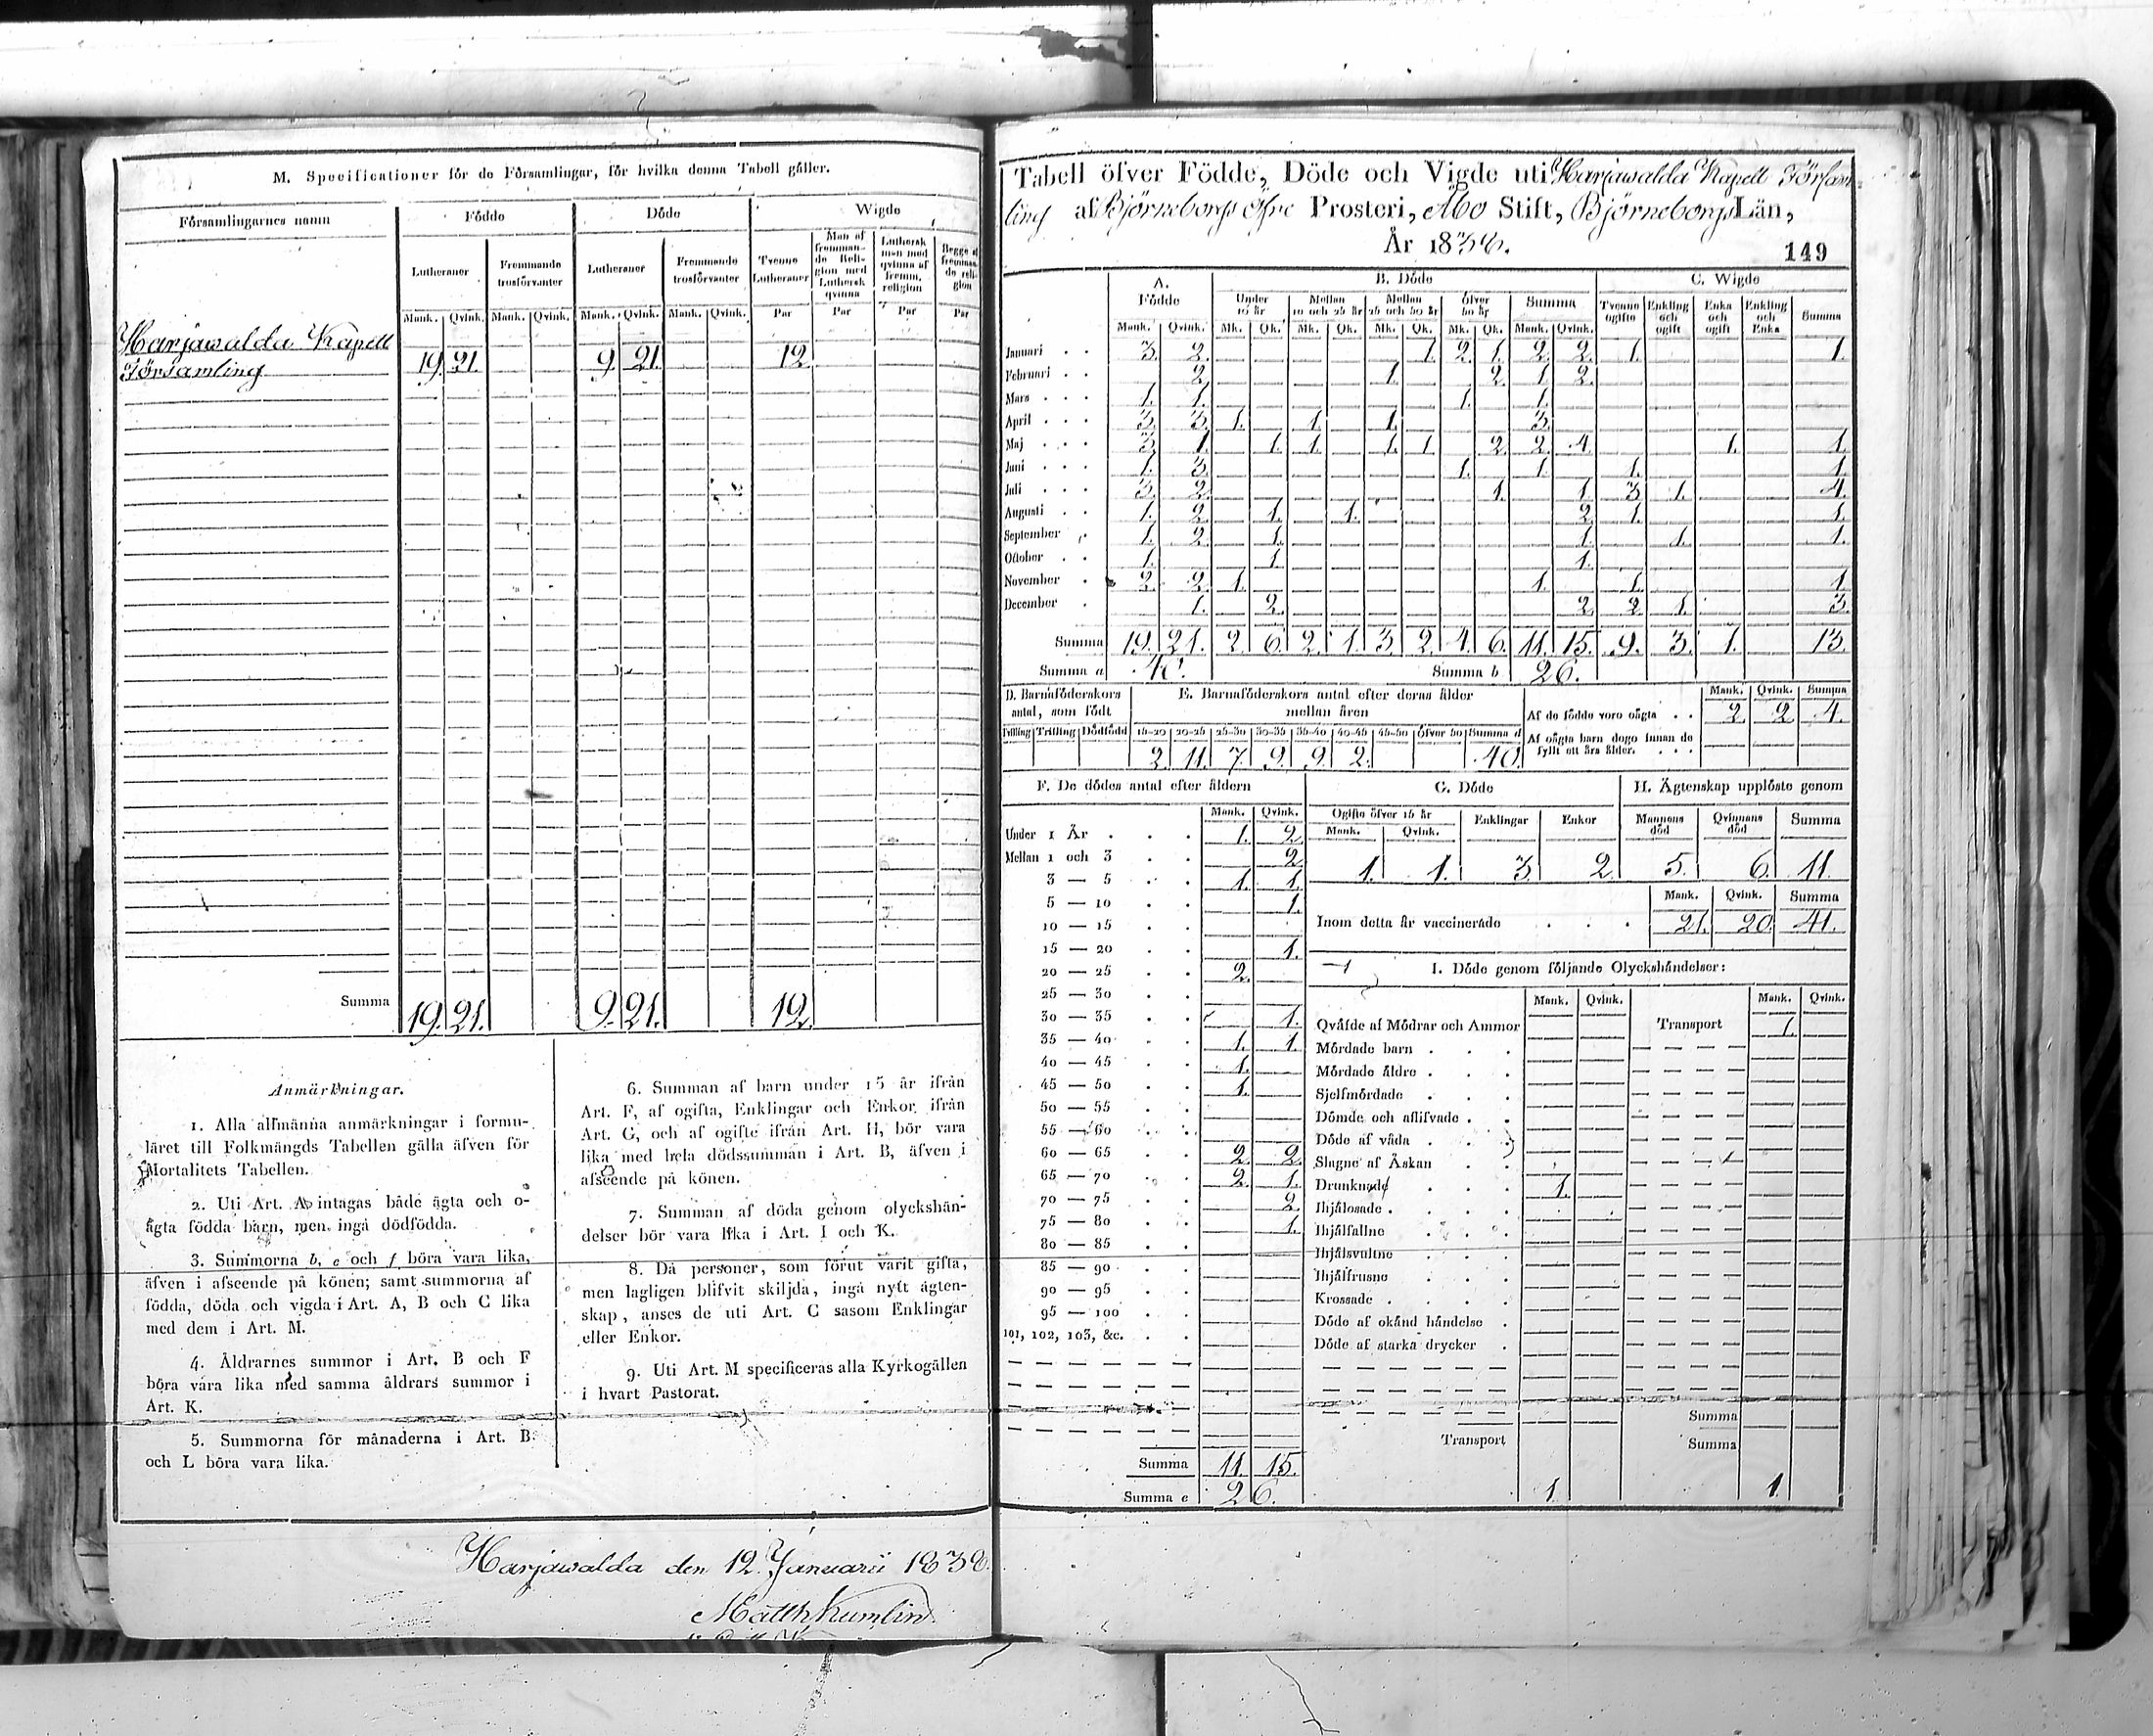 M. Specificationer för de Församlingar, för hvilka denna Tabell gäller.
Församlingarnes namn Födde Döde Wigde
Lutheraner Fremmande trosförvanter Lutheraner Fremmande trosförvanter Tvenne Lutheraner Man af fremmande Religion med Luthersk qvinna Luthersk man med qvinna af fremm. religion Begge af fremmande religion
Mank. Qvink. Mank. Qvink. Mank. Qvink. Mank. Qvink. Par Par Par Par
Harjawalda Kapell
Församling 19. 21. 9. 21. 12.
Summa 19. 21. 9. 21. 12.
Anmärkningar.
1. Alla allmänna anmärkningar i formu-
läret till Folkmängds Tabellen gälla äfven för
Mortalitets Tabellen.
2. Uti Art. A intagas både ägta och o-
ägta födda barn, men inga dödfödda.
3. Summorna b, e och f böra vara lika,
äfven i afseende på könen; samt summorna af
födda, döda och vigda i Art. A, B och C lika
med dem i Art. M.
4. Åldrarnes summor i Art. B och F
böra vara lika med samma åldrars summor i
Art. K.
5. Summorna för månaderna i Art. B
och L böra vara lika.
6. Summan af barn under 15 år ifrån
Art. F, af ogifta, Enklingar och Enkor ifrån
Art. G, och af ogifte ifrån Art. H, bör vara
lika med hela dödssumman i Art. B, äfven i
afseende på könen.
7. Summan af döda genom olyckshän-
delser bör vara lika i Art. I och K.
8. Då personer, som förut varit gifta,
men lagligen blifvit skiljda, ingå nytt ägten-
skap, anses de uti Art. C såsom Enklingar
eller Enkor.
9. Uti Art. M specificeras alla Kyrkogällen
i hvart Pastorat.
Harjawalda den 12 Januarii 1838
Matth Kumlin
Tabell öfver Födde, Döde och Vigde uti Harjawalda Kapell Församl
ling af Björneborgs öfre Prosteri, Åbo Stift, Björneborgs Län,
År 18
149
A. Födde B. Döde C. Wigde
Under 10 år Mellan 10 och 25 år Mellan 25 och 50 år Öfver 50 år Summa Tvenne ogifte Enkling och ogift Enka och ogift Enkling och Enka Summa
Mank. Qvink. Mk. Qk. Mk. Qk. Mk. Qk. Mk. Qk. Mank. Qvink.
Januari 3. 2. 1. 2. 1. 2. 2. 1. 1.
Februari 2. 1. 2. 1. 2.
Mars 1. 1. 1. 1.
April 3. 3. 1. 1. 1. 3.
Maj 3. 1. 1. 1. 1. 1. 2. 2. 4. 1. 1.
Juni 1. 3. 1. 1. 1. 1.
Juli 3. 2. 1. 1. 3. 1. 4.
Augusti 1. 2. 1. 1. 2. 1. 1.
September 1. 2. 1. 1. 1. 1.
Oktober 1. 1. 1.
November 2. 2. 1. 1. 1. 1.
December 1. 2. 2. 2. 1. 3.
Summa 19. 21. 2. 6. 2. 1. 3. 2. 4. 6. 11. 15. 9. 3. 1. 13.
Summa a 40. Summa b 26.
D. Barnaföderskors antal, som födt E. Barnaföderskors antal efter deras ålder mellan åren
Mank. Qvink. Summa
Af de födde voro oägta 2. 2. 4.
Tvilling Trilling Dödfödd 15-20 20-25 25-30 30-35 35-40 40-45 45-50 öfver 50 Summa d
2. 11. 7. 9. 9. 2. 40.
Af oägta barn dogo innan de
fyllt ett års ålder.
F. De dödes antal efter åldern
Mank. Qvink.
Under 1 År 1. 2.
Mellan 1 och 3 2.
3 — 5 1. 1.
5 — 10 1.
10 — 15
15 — 20 1.
20 — 25 2.
25 — 30
30 — 35 1.
35 — 40 1. 1.
40 — 45 1.
45 — 50 1.
50 — 55
55 — 60
60 — 65 2. 2.
65 — 70 2. 1.
70 — 75 2.
75 — 80 1.
80 — 85
85 — 90
90 — 95
95 — 100
101, 102, 103, &c.
Summa 11. 15.
Summa e 26.
G. Döde H. Ägtenskap upplöste genom
Ogifte öfver 15 år Enklingar Enkor Mannens död Qvinnans död Summa
Mank. Qvink.
1. 1. 3. 2. 5. 6. 11.
Mank. Qvink. Summa
Inom detta år vaccinerade 21. 20. 41.
I. Döde genom följande Olyckshändelser:
Mank. Qvink. Mank. Qvink.
Qväfde af Mödrar och Ammor Transport 1.
Mördade barn
Mördade äldre
Sjelfmördade
Dömde och aflifvade
Döde af våda
Slagne af Åskan
Drunknade 1.
Ihjälosade
Ihjälfallne
Ihjälsvultne
Ihjälfrusne
Krossade
Döde af okänd händelse
Döde af starka drycker
Summa
Transport 1 Summa 1